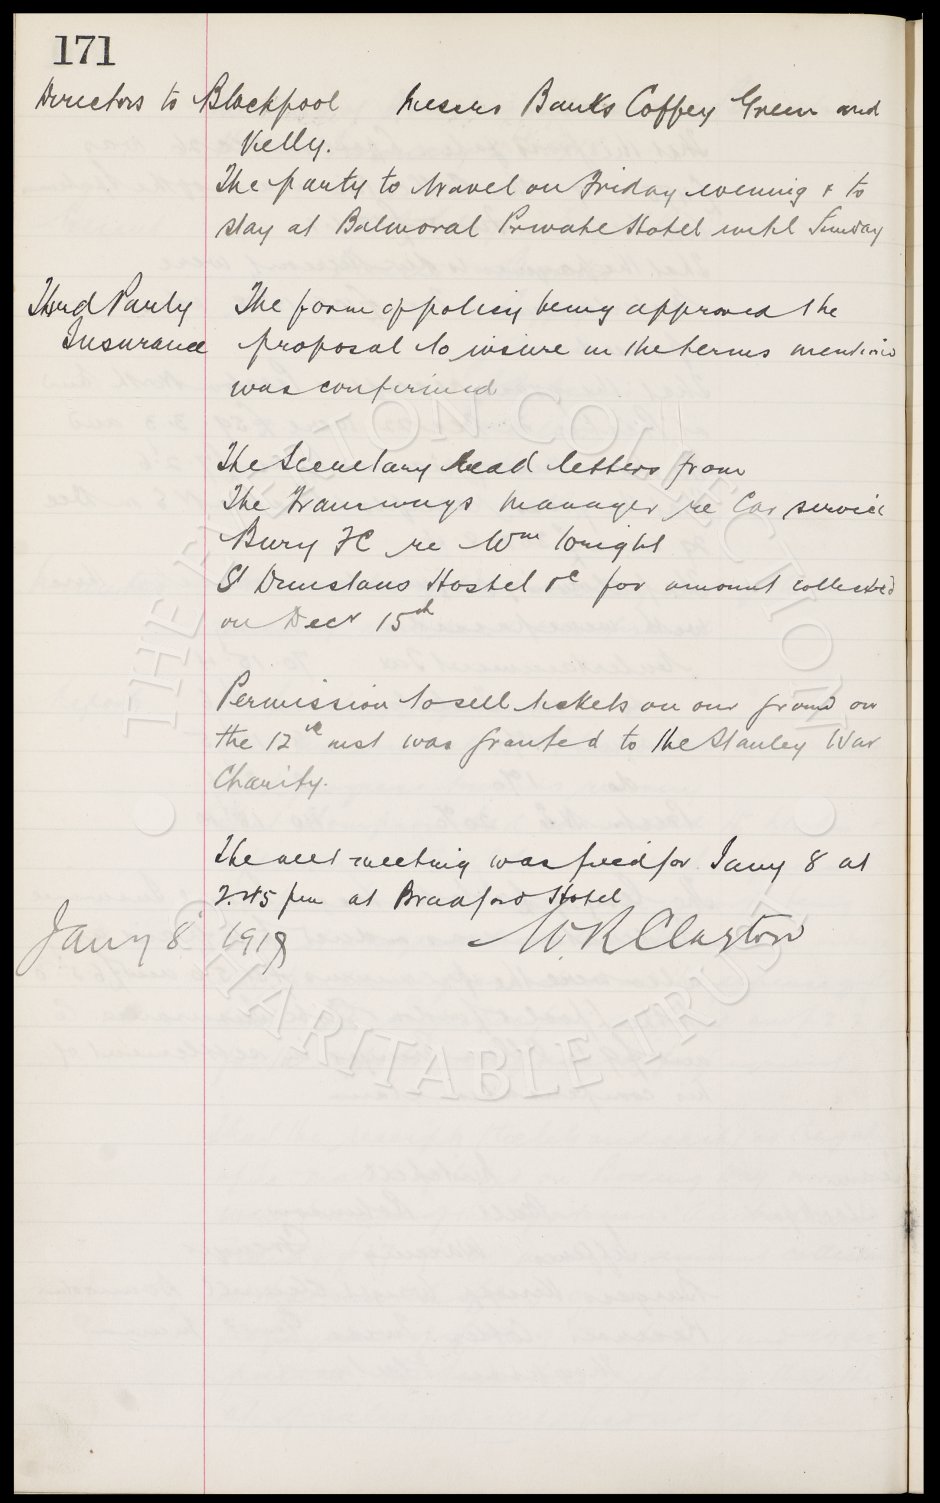 171
Directors to Blackpool Messrs Banks Coffey Green and
Kelly.
The party to travel on Friday evening & to
stay at Balmoral Private Hotel until Sunday
Third Party The form of policy being approved the
Insurance proposal to insure in the terms mentioned
was confirmed
The Secretary read letters from
The Tramways Manager re Car service
Bury FC re Wm Wright
St Dunstans Hostel &c for amount collected
on Decr 15th
Permission to sell tickets on our ground on
the 12th inst was granted to the Stanley War
Charity.
The next meeting was fixed for Jany 8 at
2.45 pm at Bradford Hotel
Jany 8 1918 W. R Clayton
THE EVERTON COLLECTION
CHARITABLE TRUST